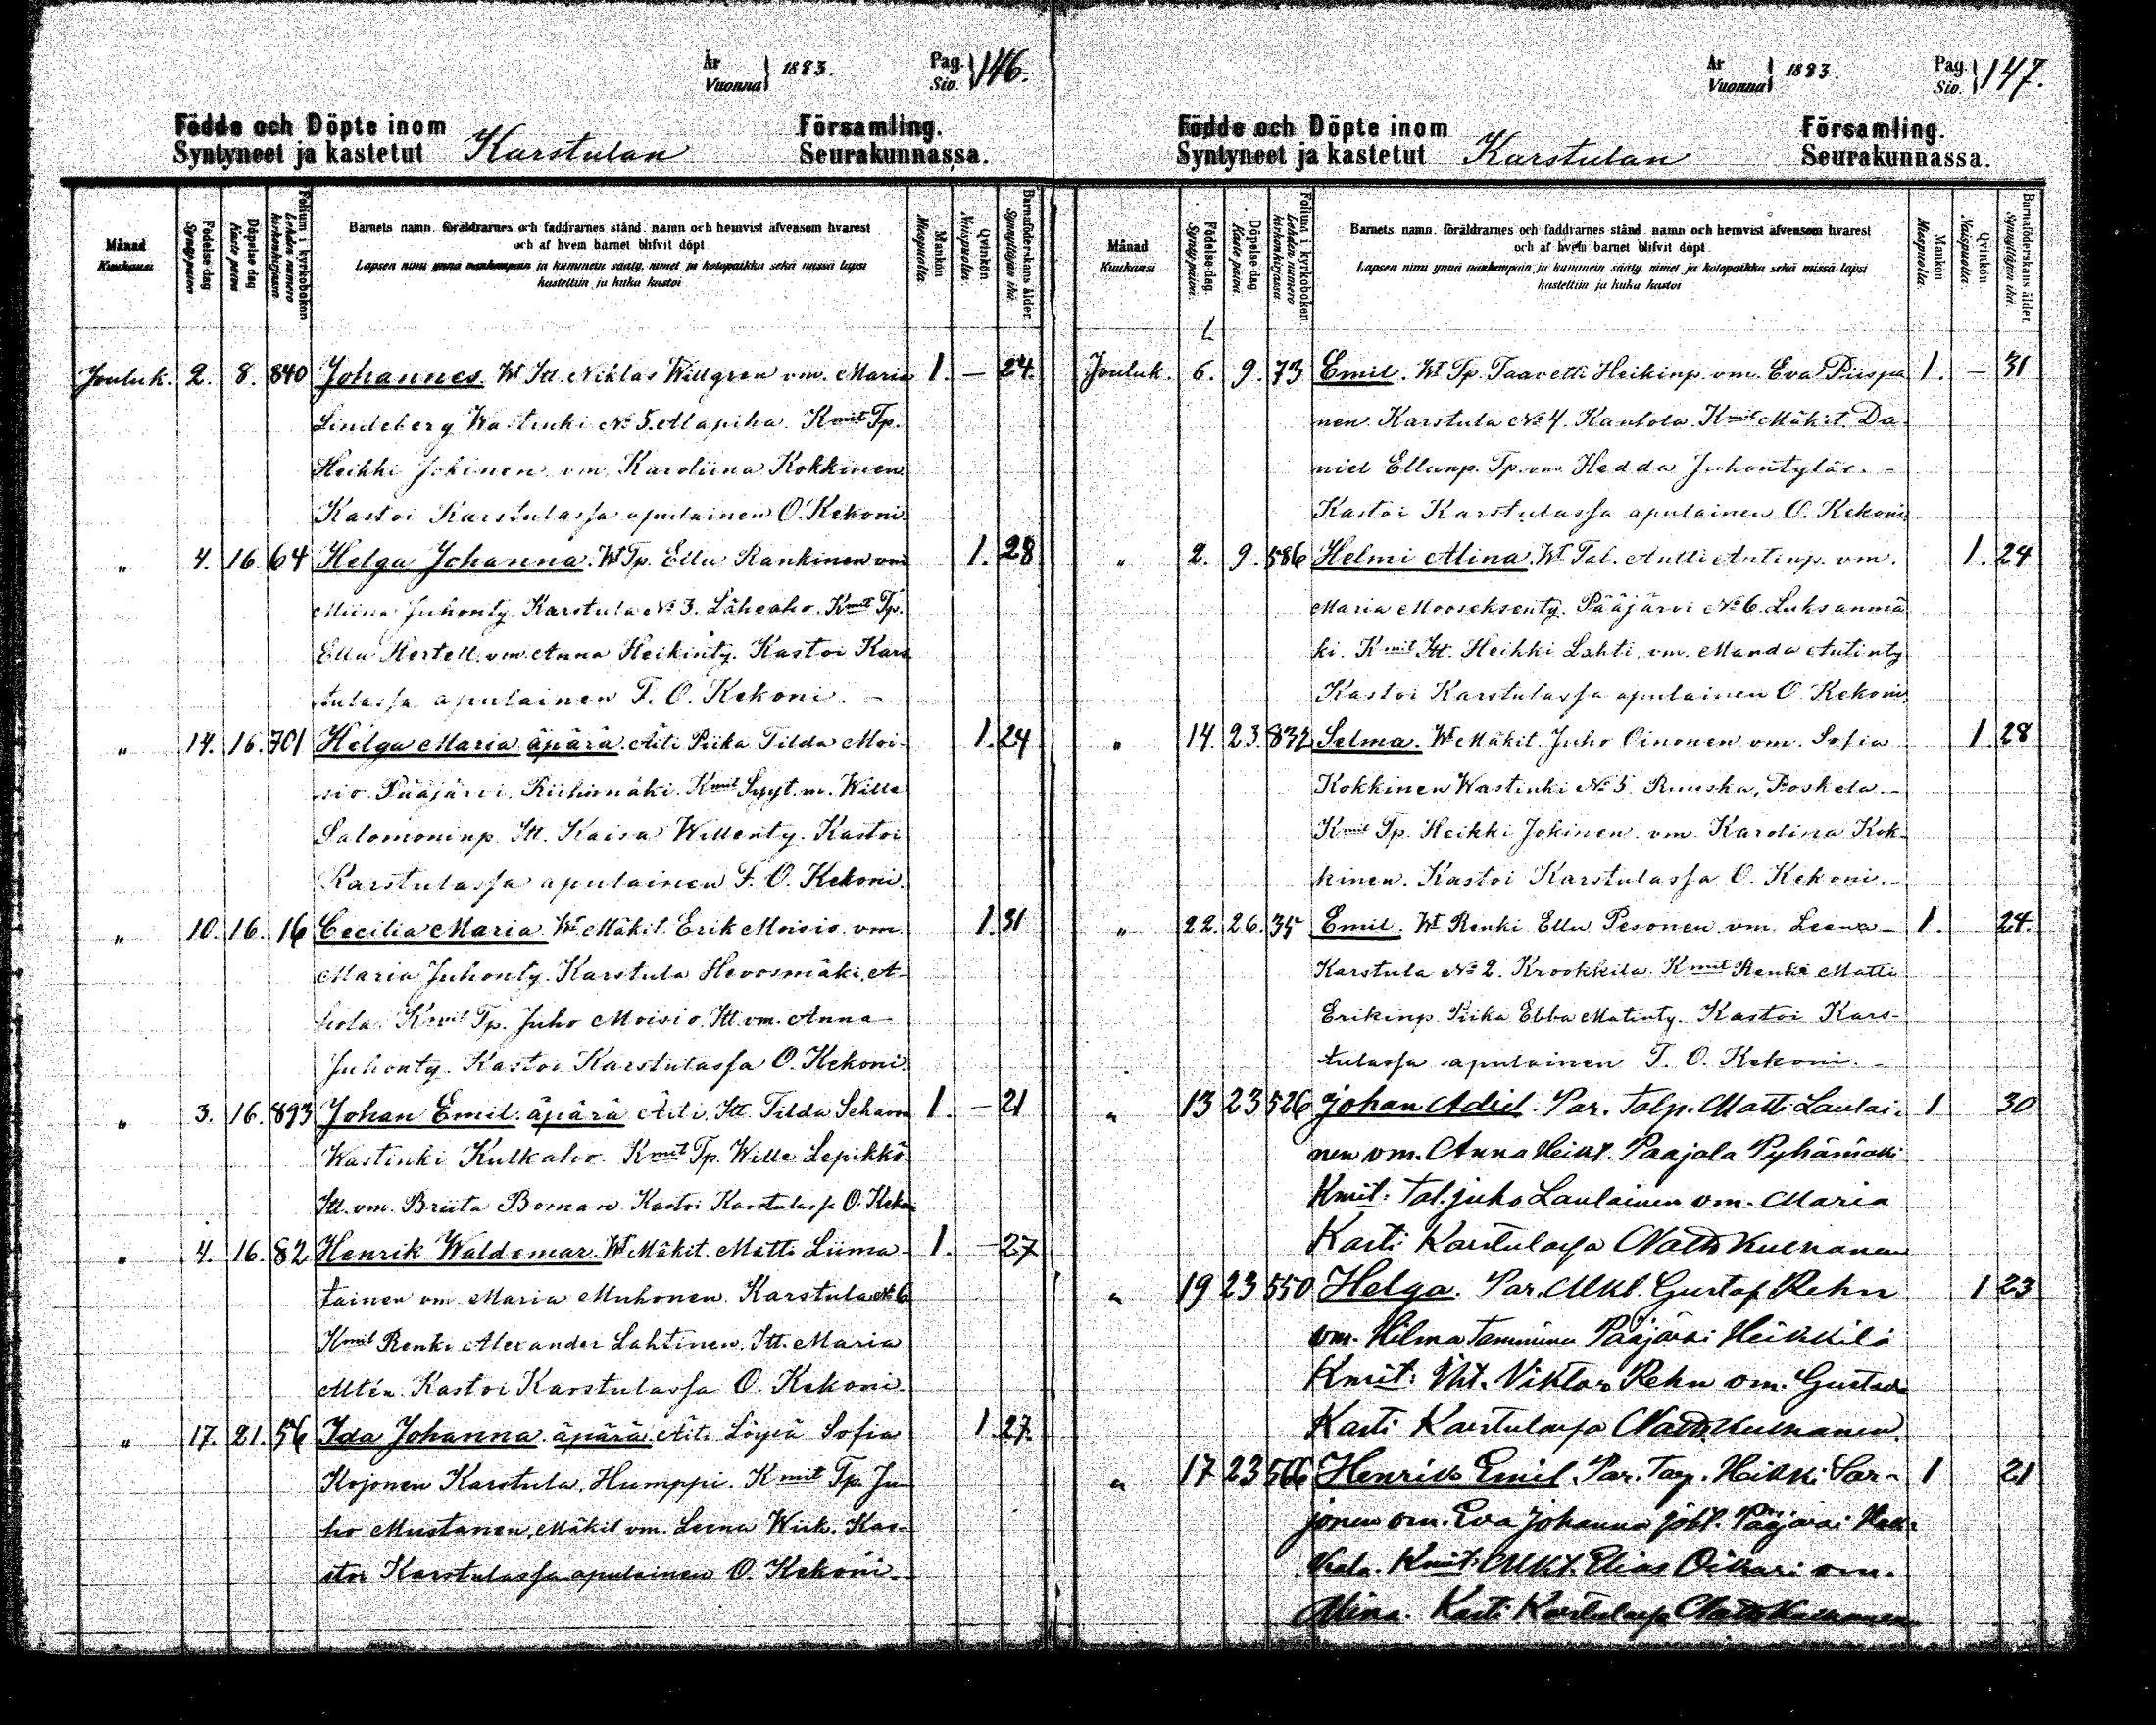 År Vuonna } 1883. Pag. Siv. } 146.
Födde och Döpte inom Församling.
Syntyneet ja kastetut Karstulan Seurakunnassa.
Månad Kuukausi
Födelse-dag Synty-päivä
Döpelse dag Kaste päivä
Folium i kyrkoboken Lehden numero kirkonkirjassa
Barnets namn, föräldrarnes och faddrarnes stånd, namn och hemvist äfvensom hvarest
och af hvem barnet blifvit döpt
Lapsen nimi ynnä vanhempain ja kummein sääty, nimet ja kotopaikka sekä missä lapsi
kastettiin ja kuka kastoi
Mankön Miespuolia.
Qvinkön Naispuolia.
Barnaföderskans ålder. Synnyttäjän ikä.
Jouluk. 2. 8. 840 Johannes. Wt Itl. Niklas Willgren vm. Maria 1. — 24.
Lindeberg Wastinki No 5. Alapiha. Kmit Tp.
Heikki Jokinen vm. Karoliina Kokkinen.
Kastoi Karstulassa apulainen O. Kekoni.
" 4. 16. 64 Helga Johanna. Wt Tp. Ellu Rankinen vm 1. 28
Miina Juhonty. Karstula No 3. Läheaho. Kmit Tp.
Ellu Hertell. vm. Anna Heikinty. Kastoi Kars
tulassa apulainen F. O. Kekoni. –
" 14. 16. 701 Helga Maria äpärä. Äiti Piika Tilda Moi- 1. 24
sio. Pääjärvi. Riihimäki. Kmit Syyt. m. Wille
Salomoninp. Itl. Kaisa Willenty. Kastoi
Karstulassa apulainen F. O. Kekoni.
" 10. 16. 16 Cecilia Maria. Wt Mäkit. Erik Moisio vm. 1. 31
Maria Juhonty. Karstula Hevosmäki, A-
hola. Kmit Tp. Juho Moisio. Itl. vm. Anna
Juhonty. Kastoi Karstulassa O. Kekoni.
" 3. 16. 893 Johan Emil. äpärä Äiti. Itl. Tilda 1. — 21
Wastinki Kulkaho. Kmit Tp. Wille Lepikkö
Itl. vm. Briita Boman. Kastoi Karstulassa O. Kekoni
" 4. 16. 82 Henrik Waldemar. Wt Mäkit. Matti Liima- 1. — 27
tainen vm. Maria Muhonen. Karstula No 6
Kmit Renki Alexander Lahtinen. Itl. Maria
Altén. Kastoi Karstulassa O. Kekoni.
" 17. 21. 56 Ida Johanna äpärä. Äiti Löysä Sofia 1. 27.
Kojonen Karstula, Humppi. Kmit Tp. Ju
ho Mustanen, Mäkit vm. Leena Wiik. Kas-
stoi Karstulassa apulainen O. Kekoni.
År Vuonna } 1883. Pag. Siv. } 147.
Födde och Döpte inom Församling.
Syntyneet ja kastetut Karstulan Seurakunnassa.
Månad Kuukausi
Födelse-dag. Synty-päivä.
Döpelse-dag. Kaste päivä.
Folium i kyrkoboken Lehden numero kirkonkirjassa.
Barnets namn, föräldrarnes och faddrarnes stånd, namn och hemvist äfvensom hvarest
och af hvem barnet blifvit döpt.
Lapsen nimi ynnä vanhempain ja kummein sääty, nimet ja kotopaikka sekä missä lapsi
kastettiin ja kuka kastoi
Mankön Miespuolia.
Qvinkön Naispuolia.
Barnaföderskans ålder. Synnyttäjän ikä.
Jouluk. 6. 9. 73 Emil. Wt Tp. Taavetti Heikinp. vm. Eva Piispa 1. — 31
nen. Karstula No 4. Kantola. Kmit Mäkit. Da
niel Ellunp. Tp. vm. Hedda Juhontytär. –
Kastoi Karstulassa apulainen O. Kekoni.
" 2. 9. 586 Helmi Alina. Wt Tal. Antti Antinp. vm. 1. 24
Maria Mooseksenty. Pääjärvi No 6. Luksanmä
ki. Kmit Itl. Heikki Lahti, vm. Manda Antinty
Kastoi Karstulassa apulainen O. Kekoni.
" 14. 23. 832 Selma. Wt Mäkit. Juho Oinonen vm. Sofia 1. 28
Kokkinen Wastinki No 5. Ruuska, Poskela. –
Kmit Tp. Heikki Jokinen vm. Karolina Kok-
kinen. Kastoi Karstulassa O. Kekoni. –
" 22. 26. 35 Emil. Wt Renki Ellu Pesonen vm. Leena – 1. 24.
Karstula No 2. Krookkila. Kmit Renki Matti
Erikinp. Piika Ebba Matinty. Kastoi Kars-
tulassa apulainen F. O. Kekoni. –
" 13 23 526 Johan Adiel. Par. Talp. Matti Laulai- 1 30
nen vm. Anna Heikt. Paajala Pyhämäki
Kmit: Tal. Juho Laulainen vm. Maria
Kasti Karstulassa
" 19 23 550 Helga. Par. Mkt. Gustaf Rehn 1 23
vm. Hilma Tammina Pääjärvi Heikkilä
Kmit: Viktor Rehn vm. Gustava
Kasti Karstulassa
" 17 23 566 Henrik Emil. Par. Heikki Sar- 1 21
jonen vm. Eva Johanna Pääjärvi
Kmit: Mkt. Elias Oikari vm.
Miina. Kasti Karstulassa